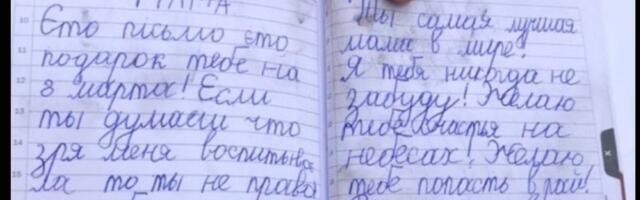 МАМА
Єто письмо єто
подарок тебе на
8 марта! Если
ты думаеш что
зря меня воспитыва
ла то ты не права
Ты самая лучшая
мама в мире!
Я тебя никогда не
забуду! Желаю
тебе счастья на
небесах! Желаю
тебе попасть в рай!
10
11
12
13
14
15